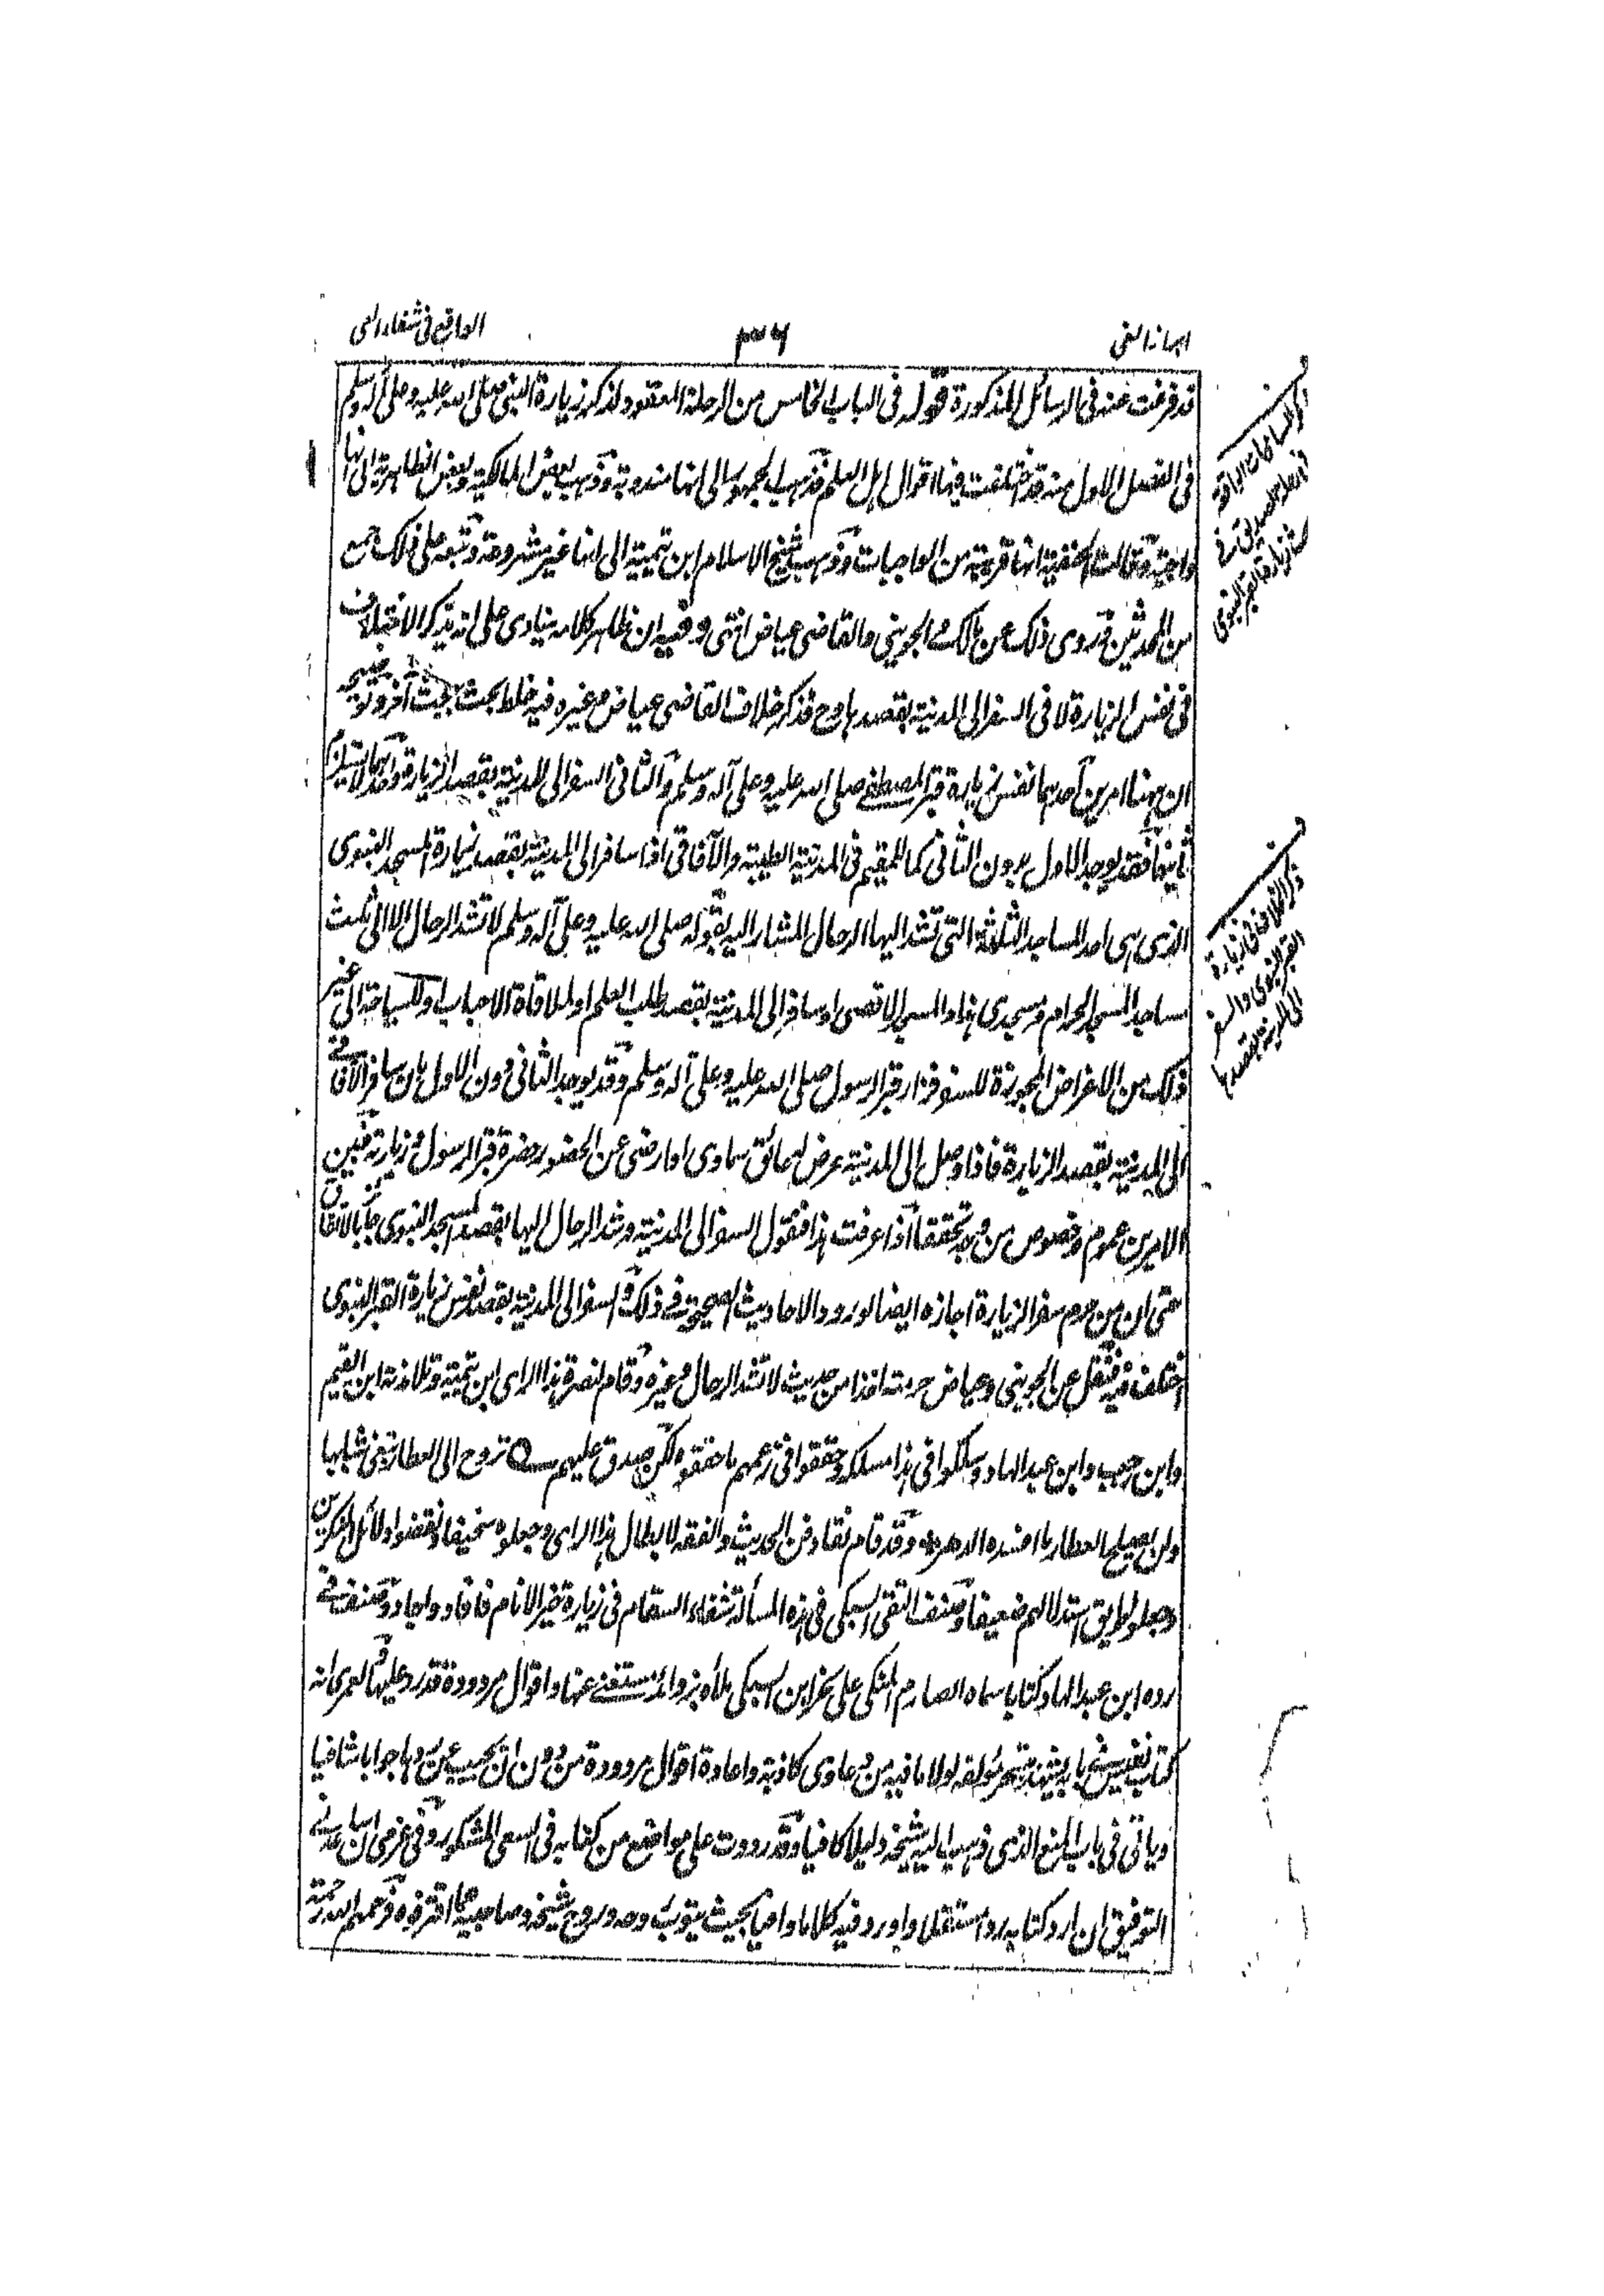 ابراز الغي
٣٦
الواقع في شفاء العي
قد فرغت عنه في الرسائل المذكورة قوله في الباب الخامس من الرحلة المعقود لذكر زيارة النبي صلى الله عليه وعلى آله وسلم
في الفصل الاول منه قد اختلفت فيها اقوال اهل العلم فذهب الجمهور الى انها مندوبة وذهب بعض المالكية وبعض الظاهرية الى انها
واجبة وقالت الحنفية انها قريبة من الواجبات وذهب شيخ الاسلام ابن تيمية الى انها غير مشروعة وتبعه على ذلك جمع
من المحدثين وروى ذلك عن مالك والجويني والقاضي عياض انتهى وفيه ان ظاهر كلامه ينادي على انه يذكر الاختلاف
في نفس الزيارة لا في السفر الى المدينة بقصدها وح فذكر خلاف القاضي عياض وغيره فيه خلط بحث ببحث آخر وتوضيحه
ان ههنا امرين احدهما نفس زيارة قبر المصطفى صلى الله عليه وعلى آله وسلم والثاني السفر الى المدينة بقصد الزيارة واحدهما لا يستلزم
ثانيهما فقد يوجد الاول بدون الثاني كما للمقيم في المدينة الطيبة والآفاقي اذا سافر الى المدينة بقصد زيارة المسجد النبوي
الذي هي احد المساجد الثلثة التي تشد اليها الرحال المشار اليه بقوله صلى الله عليه وعلى آله وسلم لا تشد الرحال الا الى ثلث
مساجد المسجد الحرام ومسجدي هذا والمسجد الاقصى او سافر الى المدينة بقصد طلب العلم او لملاقاة الاحباب او للسياحة الى غير
ذلك من الاغراض المجوزة للسفر فزار قبر الرسول صلى الله عليه وعلى آله وسلم وقد يوجد الثاني دون الاول بان سافر الآفاقي
الى المدينة بقصد الزيارة فاذا وصل الى المدينة عرض له عائق سماوي او ارضي عن الحضور حضرة قبر الرسول وزيارته فبين
الامرين عموم وخصوص من وجه تحققا اذا عرفت هذا فنقول السفر الى المدينة وشد الرحال اليها بقصد المسجد النبوي جائز بالاتفاق
حتى ان من حرم سفر الزيارة اجازه ايضا لورود الاحاديث الصحيحة في ذلك والسفر الى المدينة بقصد نفس زيارة القبر النبوي
اختلف فيه فنقل عن الجويني وعياض حرمته اخذا من حديث لا تشد الرحال وغيره وقام لنصرة هذا الراي ابن تيمية وتلامذته ابن القيم
وابن رجب وابن عبد الهاد وسلكوا في هذا مسلكا وحققوا في زعمهم ما حققوه لكن صدق عليهم تروح الى العطار تبغي شبابها
ولن يصلح العطار ما افسده الدهر وقد قام نقاد فن الحديث والفقه لابطال هذا الراي وجعلوه سخيفا ونقضوا دلائل المنكرين
وجعلوا طريق استدلالهم ضعيفا وصنف التقي السبكي في هذه المسألة شفاء السقام في زيارة خير الانام فافاد واجاد وصنف في
رده ابن عبد الهاد كتابا سماه الصارم المنكي على نحر ابن السبكي ملأه بزوائد مستغنى عنها واقوال مردودة قد رد عليها ولعمري انه
كتاب نفيس شهد بتبحر مؤلفه لولا ما فيه من دعاوى كاذبة واعادة اقوال مردودة من دون ان يجيب عن ردها جوابا شافيا
وياتي في باب المنع الذي ذهب اليه شيخه دليلا كافيا وقد رددت على مواضع من كتابه في السعي المشكور وفي عزمي ان ساعدني
التوفيق ان ارد كتابه ردا مستقلا واورد فيه كلاما وافيا بحيث يتوب وهو وروح شيخه وصاحبيه مما اقترفوه فرحمهم الله رحمة
ذكر الخلاف في زيارة
القبر النبوي والسفر
الى المدينة بقصدها